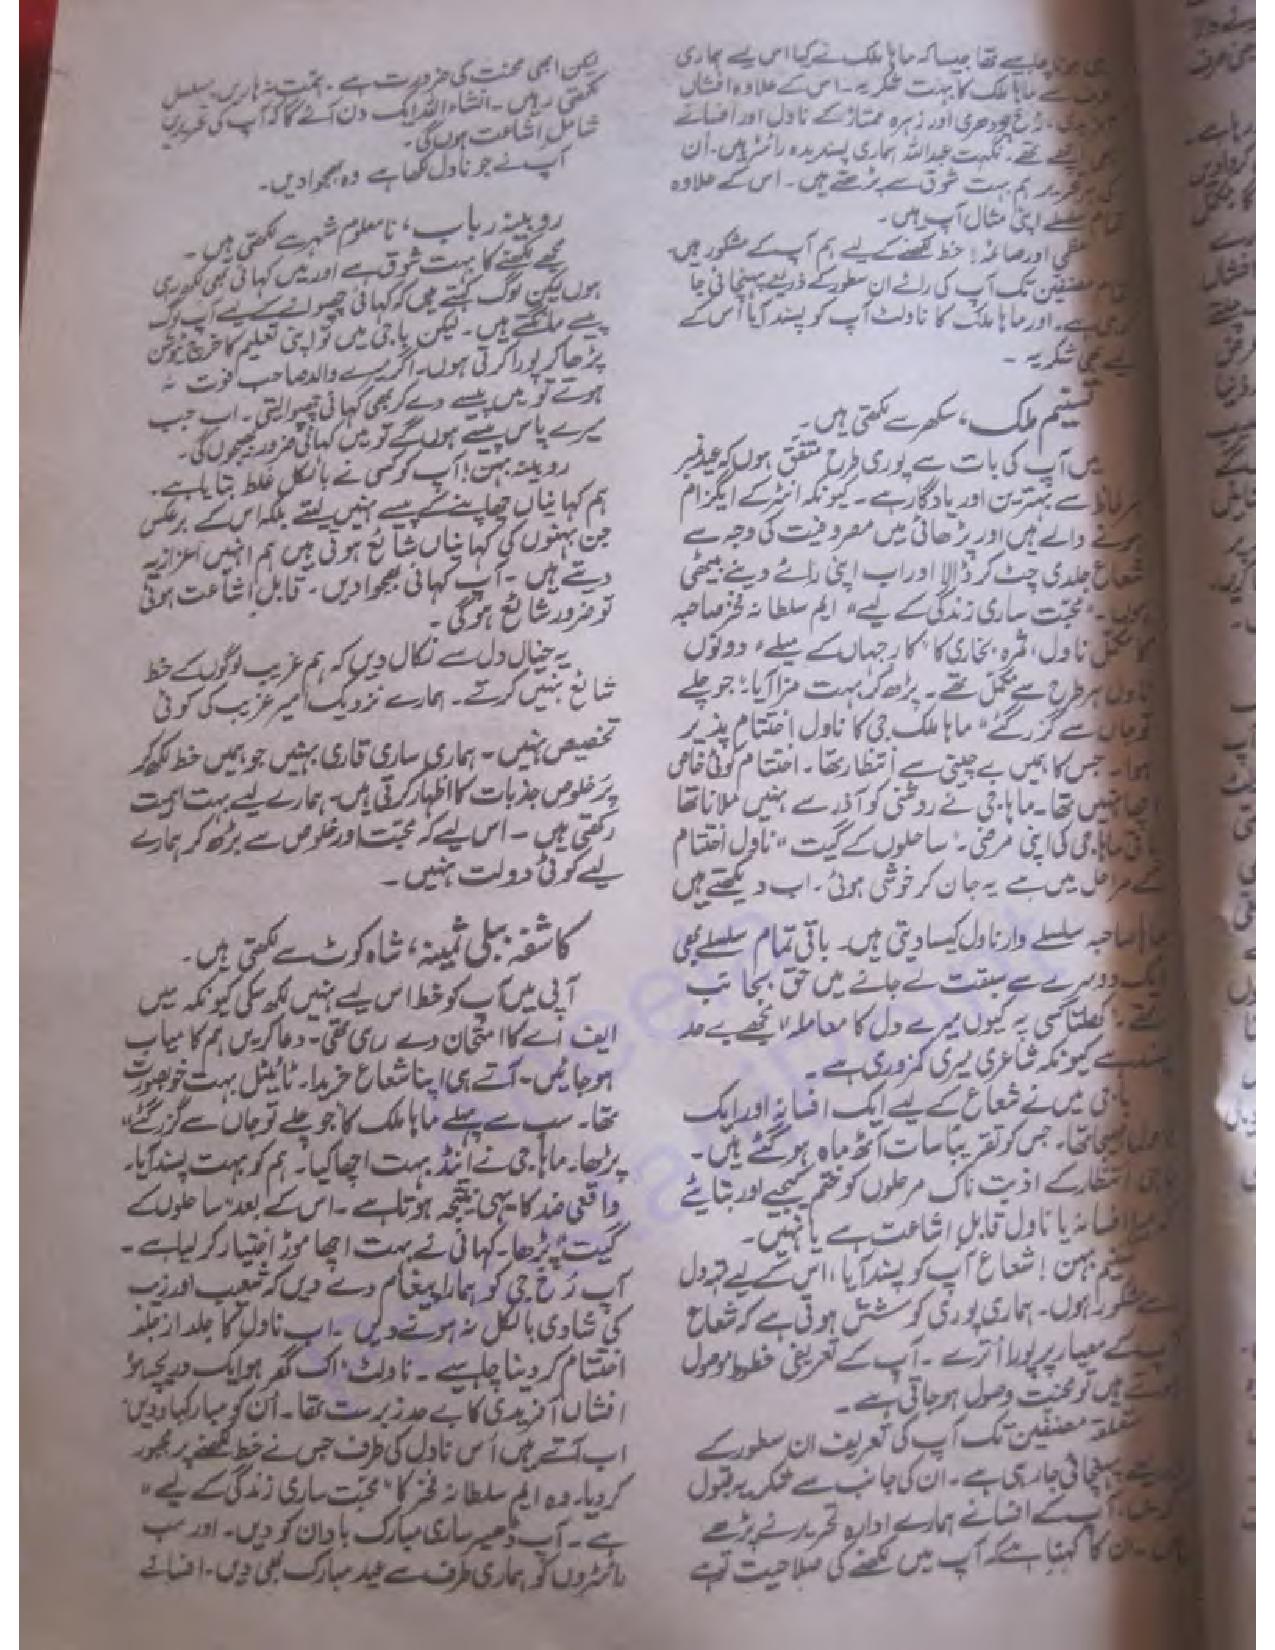 ہی ہونا چاہیے تھا جیسا کہ ماہا ملک نے کیا اس لیے ہماری
طرف سے ماہا ملک کا بہت شکریہ۔ اس کے علاوہ افشاں
آفریدی، رخ چودھری اور زہرہ ممتاز کے ناول اور افسانے
بھی اچھے تھے۔ نگہت عبداللہ ہماری پسندیدہ رائٹر ہیں۔ اُن
کی ہر تحریر ہم بہت شوق سے پڑھتے ہیں۔ اس کے علاوہ
تمام سلسلے اپنی مثال آپ ہیں۔
عظمی اور صائمہ! خط لکھنے کے لیے ہم آپ کے مشکور ہیں۔
تمام مصنفین تک آپ کی رائے ان سطور کے ذریعے پہنچائی جا
رہی ہے۔ اور ماہا ملک کا ناولٹ آپ کو پسند آیا اُس کے
لیے بھی شکریہ۔
تسنیم ملک، سکھر سے لکھتی ہیں۔
میں آپ کی بات سے پوری طرح متفق ہوں کہ عید نمبر
ہر لحاظ سے بہترین اور یادگار ہے۔ کیونکہ انٹر کے ایگزام
ہونے والے ہیں اور پڑھائی میں مصروفیت کی وجہ سے
شعاع جلدی چٹ کر ڈالا اور اب اپنی رائے دینے بیٹھی
ہوں۔ "محبت ساری زندگی کے لیے" ایم سلطانہ فخر صاحبہ
کا مکمل ناول، ثمرہ بخاری کا "کار جہاں کے میلے" دونوں
ناول ہر طرح سے مکمل تھے۔ پڑھ کر بہت مزا آیا۔ "جو چلے
تو جاں سے گزر گئے" ماہا ملک جی کا ناول اختتام پذیر
ہوا۔ جس کا ہمیں بے چینی سے انتظار تھا۔ اختتام کوئی خاص
اچھا نہیں تھا۔ ماہا جی نے روشنی کو آذر سے نہیں ملانا تھا
باقی ماہا جی کی اپنی مرضی۔ "ساحلوں کے گیت" ناول اختتام
کے مراحل میں ہے یہ جان کر خوشی ہوئی۔ اب دیکھتے ہیں
ماہا صاحبہ سلسلے وار ناول کیسا دیتی ہیں۔ باقی تمام سلسلے بھی
ایک دوسرے سے سبقت لے جانے میں حق بجانب
تھے۔ "کھلتا کسی پہ کیوں میرے دل کا معاملہ" مجھے بے حد
پسند ہے کیونکہ شاعری میری کمزوری ہے۔
باجی میں نے شعاع کے لیے ایک افسانہ اور ایک
ناول بھیجا تھا۔ جس کو تقریباً سات آٹھ ماہ ہو گئے ہیں۔
باجی انتظار کے اذیت ناک مرحلوں کو ختم کیجیے اور بتائیے
کہ میرا افسانہ یا ناول قابلِ اشاعت ہے یا نہیں۔
تسنیم بہن! شعاع آپ کو پسند آیا، اس کے لیے تہہ دل
سے مشکور ہوں۔ ہماری پوری کوشش ہوتی ہے کہ شعاع
آپ کے معیار پر پورا اُترے۔ آپ کے تعریفی خطوط موصول
ہوتے ہیں تو محنت وصول ہو جاتی ہے۔
متعلقہ مصنفین تک آپ کی تعریف ان سطور کے
ذریعے پہنچائی جا رہی ہے۔ ان کی جانب سے شکریہ قبول
کریں۔ آپ کے افسانے ہمارے ادارہ تحریر نے پڑھے
ہیں۔ ان کا کہنا ہے کہ آپ میں لکھنے کی صلاحیت تو ہے
لیکن ابھی محنت کی ضرورت ہے۔ ہمت نہ ہاریں۔ مسلسل
لکھتی رہیں۔ انشاء اللہ ایک دن آئے گا کہ آپ کی تحریریں
شامل اشاعت ہوں گی۔
آپ نے جو ناول لکھا ہے وہ بھجوا دیں۔
روبینہ رباب، نامعلوم شہر سے لکھتی ہیں۔
مجھے لکھنے کا بہت شوق ہے اور میں کہانی بھی لکھ رہی
ہوں لیکن لوگ کہتے ہیں کہ کہانی چھپوانے کے لیے آپ لوگ
پیسے مانگتے ہیں۔ لیکن باجی میں تو اپنی تعلیم کا خرچ ٹیوشن
پڑھا کر پورا کرتی ہوں۔ اگر میرے والد صاحب فوت نہ
ہوتے تو میں پیسے دے کر بھی کہانی چھپوا لیتی۔ اب جب
میرے پاس پیسے ہوں گے تو میں کہانی ضرور بھیجوں گی۔
روبینہ بہن! آپ کو کسی نے بالکل غلط بتایا ہے۔
ہم کہانیاں چھاپنے کے پیسے نہیں لیتے بلکہ اس کے برعکس
جن بہنوں کی کہانیاں شائع ہوتی ہیں ہم انہیں اعزازیہ
دیتے ہیں۔ آپ کہانی بھجوا دیں۔ قابل اشاعت ہوئی
تو ضرور شائع ہو گی۔
یہ خیال دل سے نکال دیں کہ ہم غریب لوگوں کے خط
شائع نہیں کرتے۔ ہمارے نزدیک امیر غریب کی کوئی
تخصیص نہیں۔ ہماری ساری قاری بہنیں جو ہمیں خط لکھ کر
پرخلوص جذبات کا اظہار کرتی ہیں۔ ہمارے لیے بہت اہمیت
رکھتی ہیں۔ اس لیے کہ محبت اور خلوص سے بڑھ کر ہمارے
لیے کوئی دولت نہیں۔
کاشفہ ببلی ثمینہ، شاہ کوٹ سے لکھتی ہیں۔
آپی میں آپ کو خط اس لیے نہیں لکھ سکی کیونکہ میں
ایف اے کا امتحان دے رہی تھی۔ دعا کریں ہم کامیاب
ہو جائیں۔ آتے ہی اپنا شعاع خریدا۔ ٹائیٹل بہت خوبصورت
تھا۔ سب سے پہلے ماہا ملک کا "جو چلے تو جاں سے گزر گئے"
پڑھا۔ ماہا جی نے اینڈ بہت اچھا کیا۔ ہم کو بہت پسند آیا۔
واقعی ضد کا یہی نتیجہ ہوتا ہے۔ اس کے بعد "ساحلوں کے
گیت" پڑھا۔ کہانی نے بہت اچھا موڑ اختیار کر لیا ہے۔
آپ رخ جی کو ہمارا پیغام دے دیں کہ شعیب اور زیب
کی شادی بالکل نہ ہونے دیں۔ اب ناول کا جلد از جلد
اختتام کر دینا چاہیے۔ ناولٹ "اک گھر ہو ایک دریچہ ہو"
افشاں آفریدی کا بے حد زبرست تھا۔ اُن کو مبارکباد دیں
اب آتے ہیں اُس ناول کی طرف جس نے خط لکھنے پر مجبور
کر دیا۔ وہ ایم سلطانہ فخر کا "محبت ساری زندگی کے لیے"
ہے۔ آپ ڈھیر ساری مبارک باد ان کو دیں۔ اور سب
رائٹروں کو ہماری طرف سے عید مبارک بھی دیں۔ افسانے